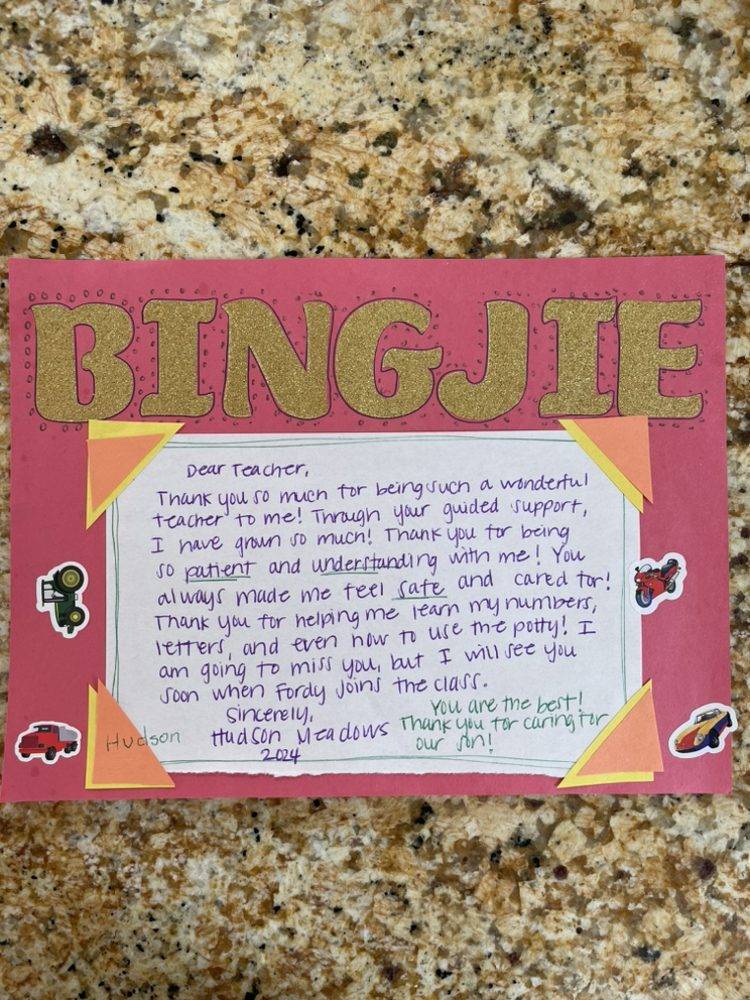 BINGJIE
Dear Teacher,
Thank you so much for being such a wonderful
teacher to me! Through your guided support,
I have grown so much! Thank you for being
so patient and understanding with me! You
always made me feel safe and cared for!
Thank you for helping me learn my numbers,
letters, and even how to use the potty! I
am going to miss you, but I will see you
soon when Fordy joins the class.
Sincerely,
Hudson Meadows
2024
You are the best!
Thank you for caring for
our son!
Hudson